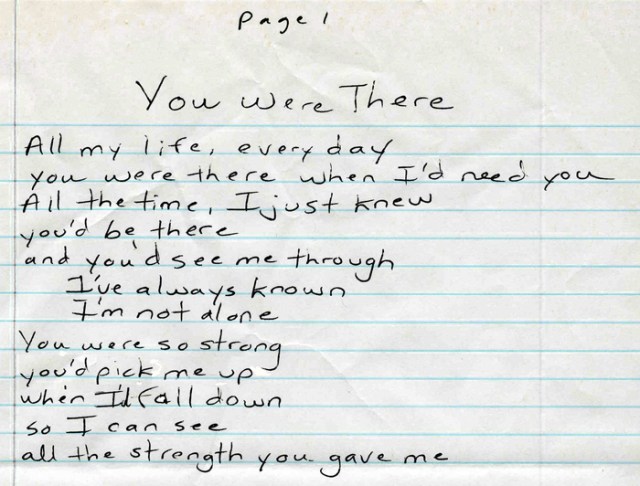 Page 1
You Were There
All my life, every day
you were there when I'd need you
All the time, I just knew
you'd be there
and you'd see me through
I've always known
I'm not alone
You were so strong
you'd pick me up
when I'd fall down
so I can see
all the strength you gave me